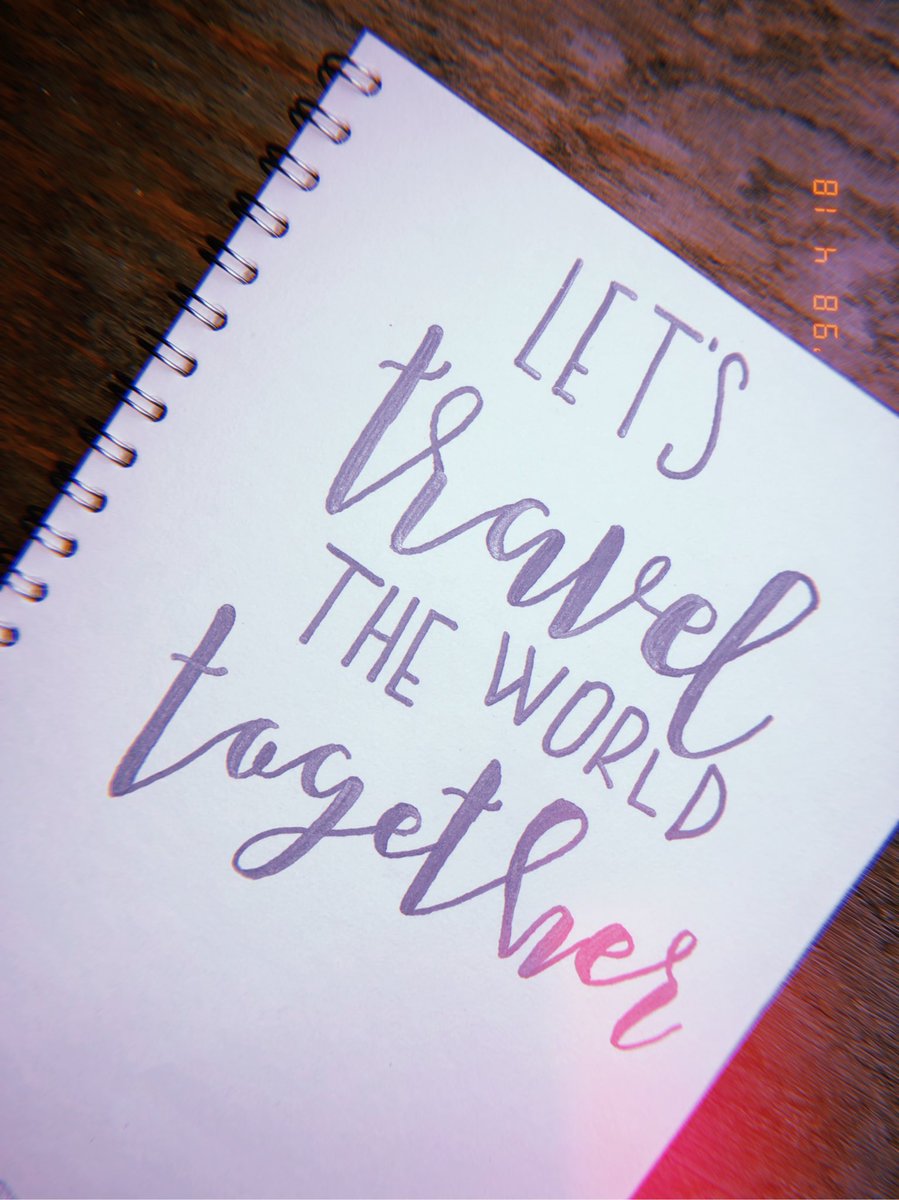 LET'S
travel
THE WORLD
together
'98 4 18